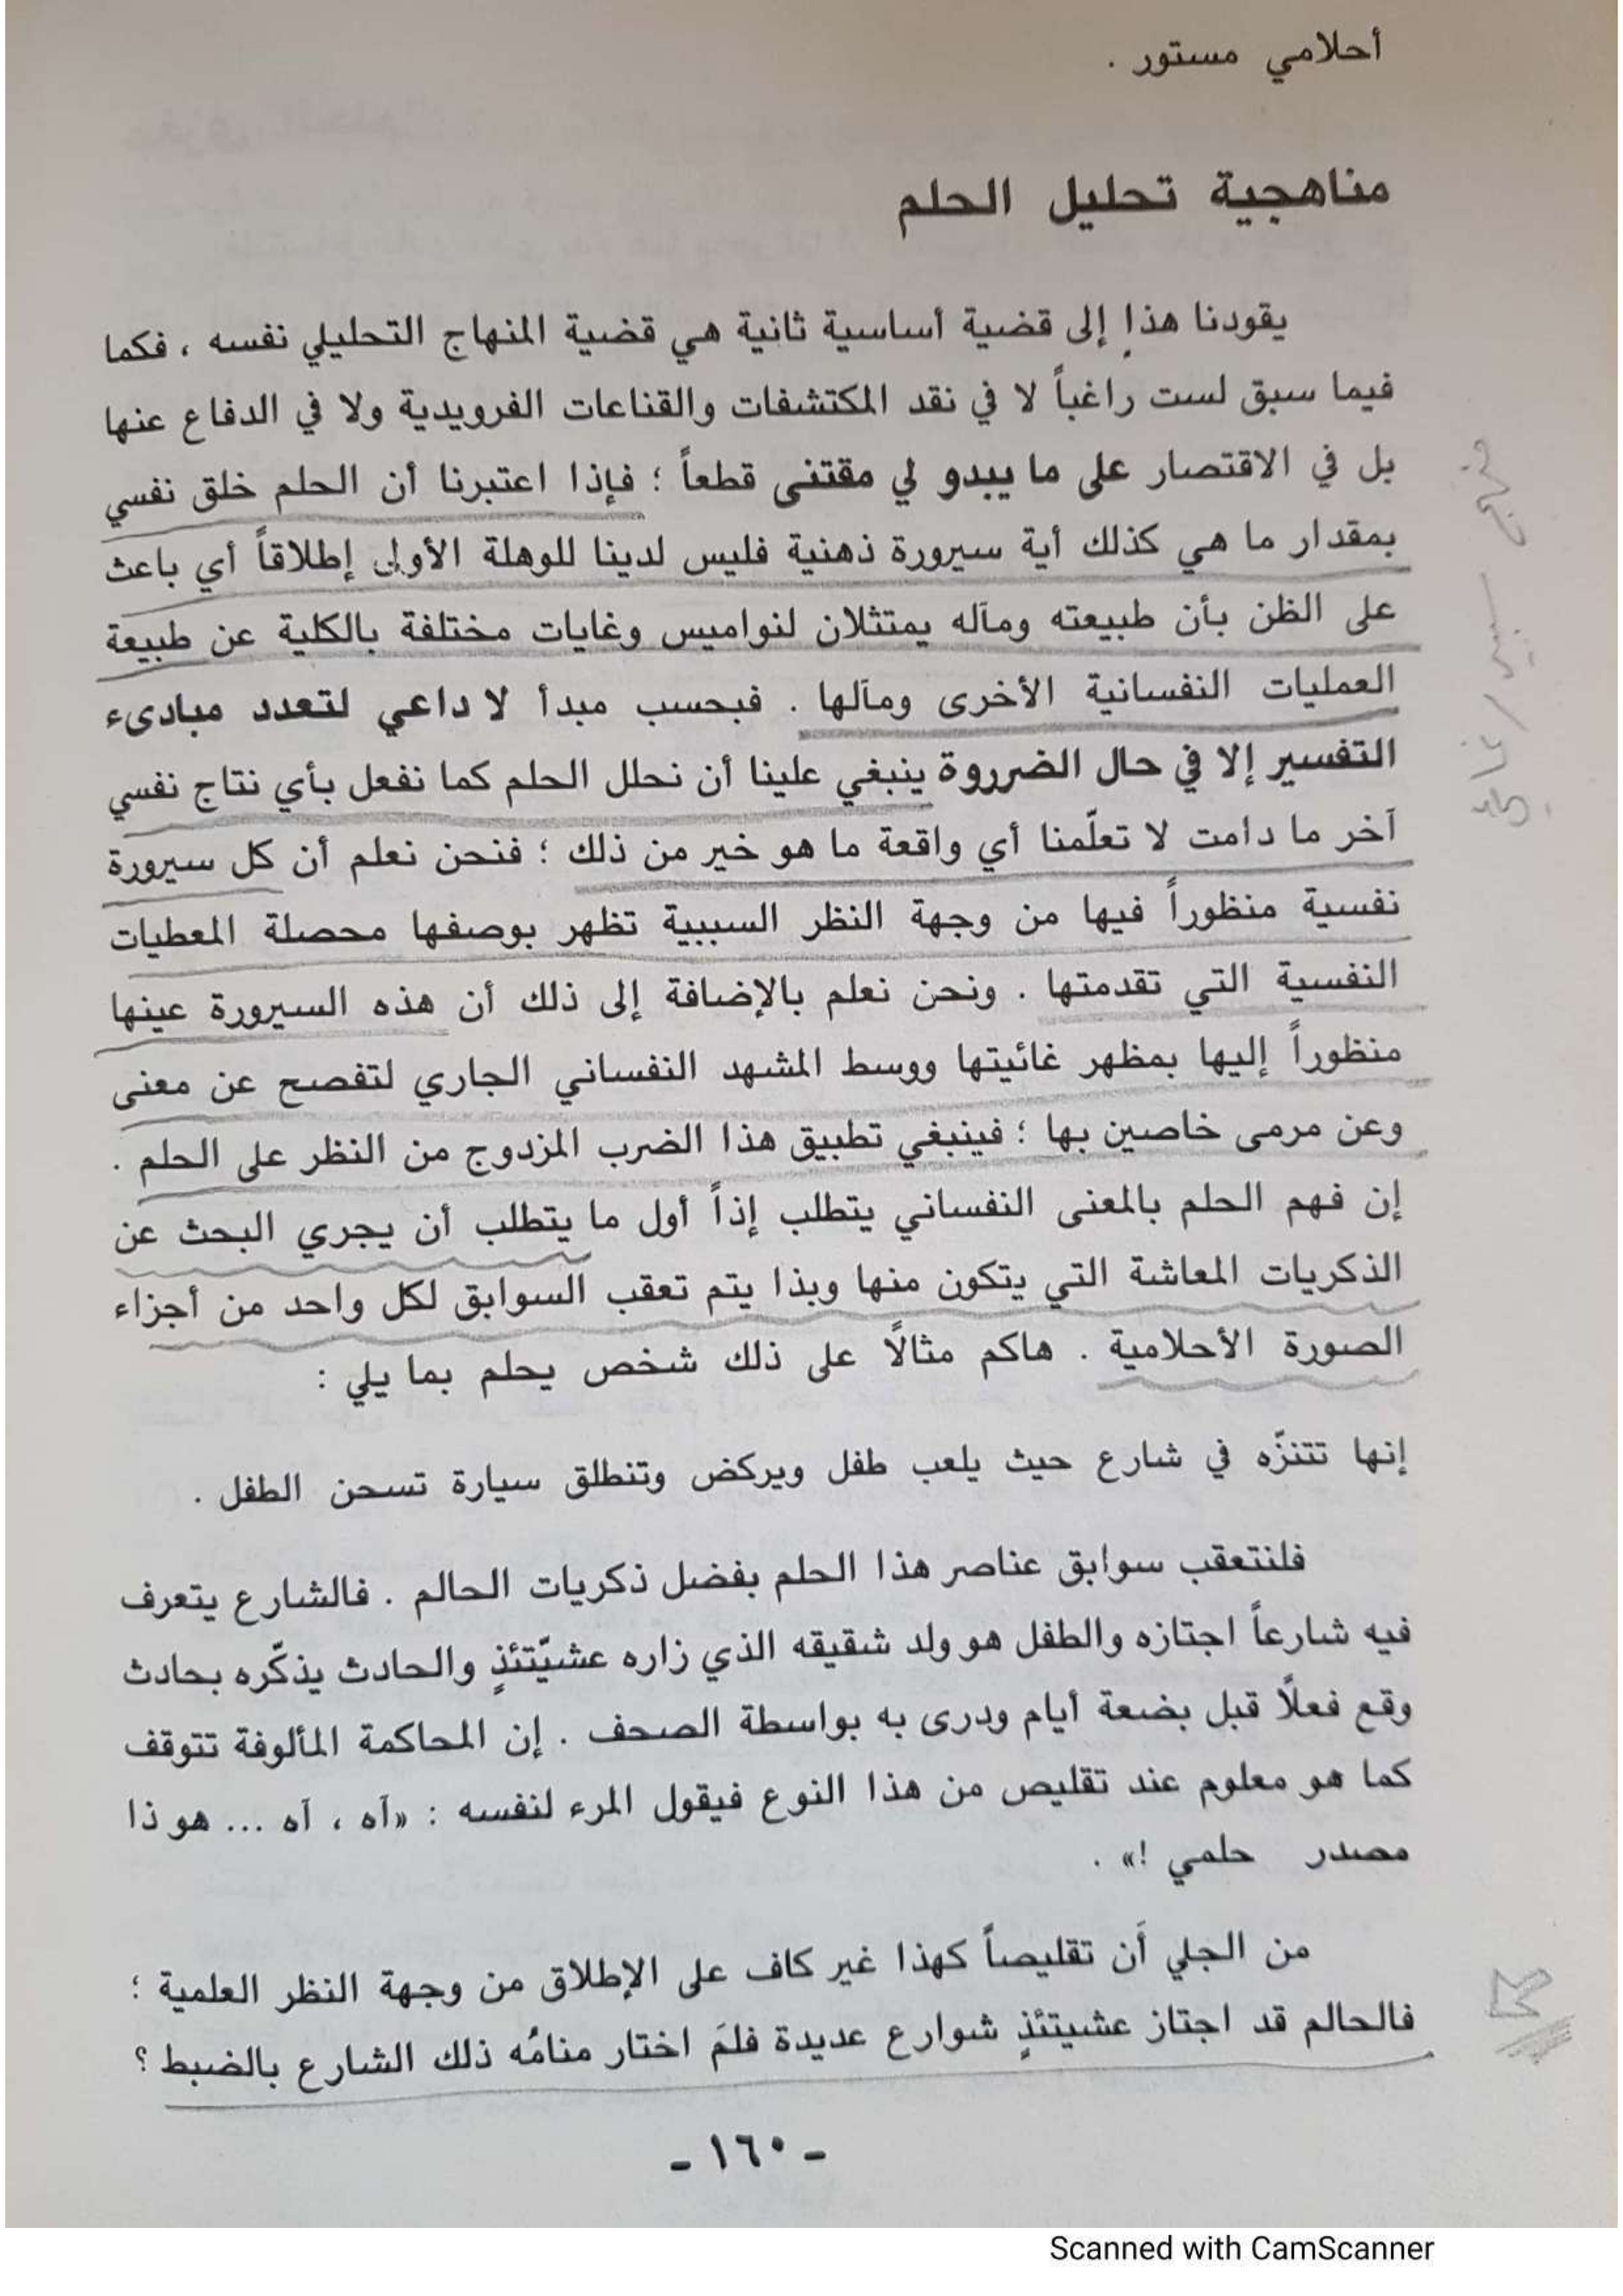 أحلامي مستور .
مناهجية تحليل الحلم
يقودنا هذا إلى قضية أساسية ثانية هي قضية المنهاج التحليلي نفسه ، فكما
فيما سبق لست راغباً لا في نقد المكتشفات والقناعات الفرويدية ولا في الدفاع عنها
بل في الاقتصار على ما يبدو لي مقتنى قطعاً ؛ فإذا اعتبرنا أن الحلم خلق نفسي
بمقدار ما هي كذلك أية سيرورة ذهنية فليس لدينا للوهلة الأولى إطلاقاً أي باعث
على الظن بأن طبيعته ومآله يمتثلان لنواميس وغايات مختلفة بالكلية عن طبيعة
العمليات النفسانية الأخرى ومآلها . فبحسب مبدأ لا داعي لتعدد مبادىء
التفسير إلا في حال الضرروة ينبغي علينا أن نحلل الحلم كما نفعل بأي نتاج نفسي
آخر ما دامت لا تعلّمنا أي واقعة ما هو خير من ذلك ؛ فنحن نعلم أن كل سيرورة
نفسية منظوراً فيها من وجهة النظر السببية تظهر بوصفها محصلة المعطيات
النفسية التي تقدمتها . ونحن نعلم بالإضافة إلى ذلك أن هذه السيرورة عينها
منظوراً إليها بمظهر غائيتها ووسط المشهد النفساني الجاري لتفصح عن معنى
وعن مرمى خاصين بها ؛ فينبغي تطبيق هذا الضرب المزدوج من النظر على الحلم .
إن فهم الحلم بالمعنى النفساني يتطلب إذاً أول ما يتطلب أن يجري البحث عن
الذكريات المعاشة التي يتكون منها وبذا يتم تعقب السوابق لكل واحد من أجزاء
الصورة الأحلامية . هاكم مثالًا على ذلك شخص يحلم بما يلي :
إنها تتنزّه في شارع حيث يلعب طفل ويركض وتنطلق سيارة تسحن الطفل .
فلنتعقب سوابق عناصر هذا الحلم بفضل ذكريات الحالم . فالشارع يتعرف
فيه شارعاً اجتازه والطفل هو ولد شقيقه الذي زاره عشيّتئذٍ والحادث يذكّره بحادث
وقع فعلًا قبل بضعة أيام ودرى به بواسطة الصحف . إن المحاكمة المألوفة تتوقف
كما هو معلوم عند تقليص من هذا النوع فيقول المرء لنفسه : «آه ، آه ... هو ذا
مصدر حلمي !» .
من الجلي أن تقليصاً كهذا غير كاف على الإطلاق من وجهة النظر العلمية ؛
فالحالم قد اجتاز عشيتئذٍ شوارع عديدة فلمَ اختار منامُه ذلك الشارع بالضبط ؟
- ١٦٠ -
Scanned with CamScanner